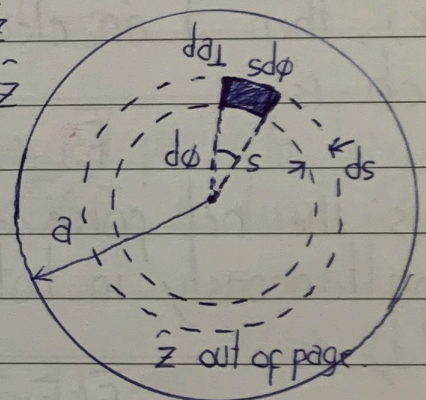 sdφ
dφ
s
ds
a
ẑ out of page.